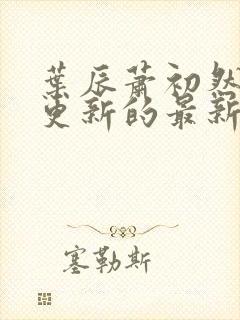 葉辰蕭初然
更新的最新
塞勒斯